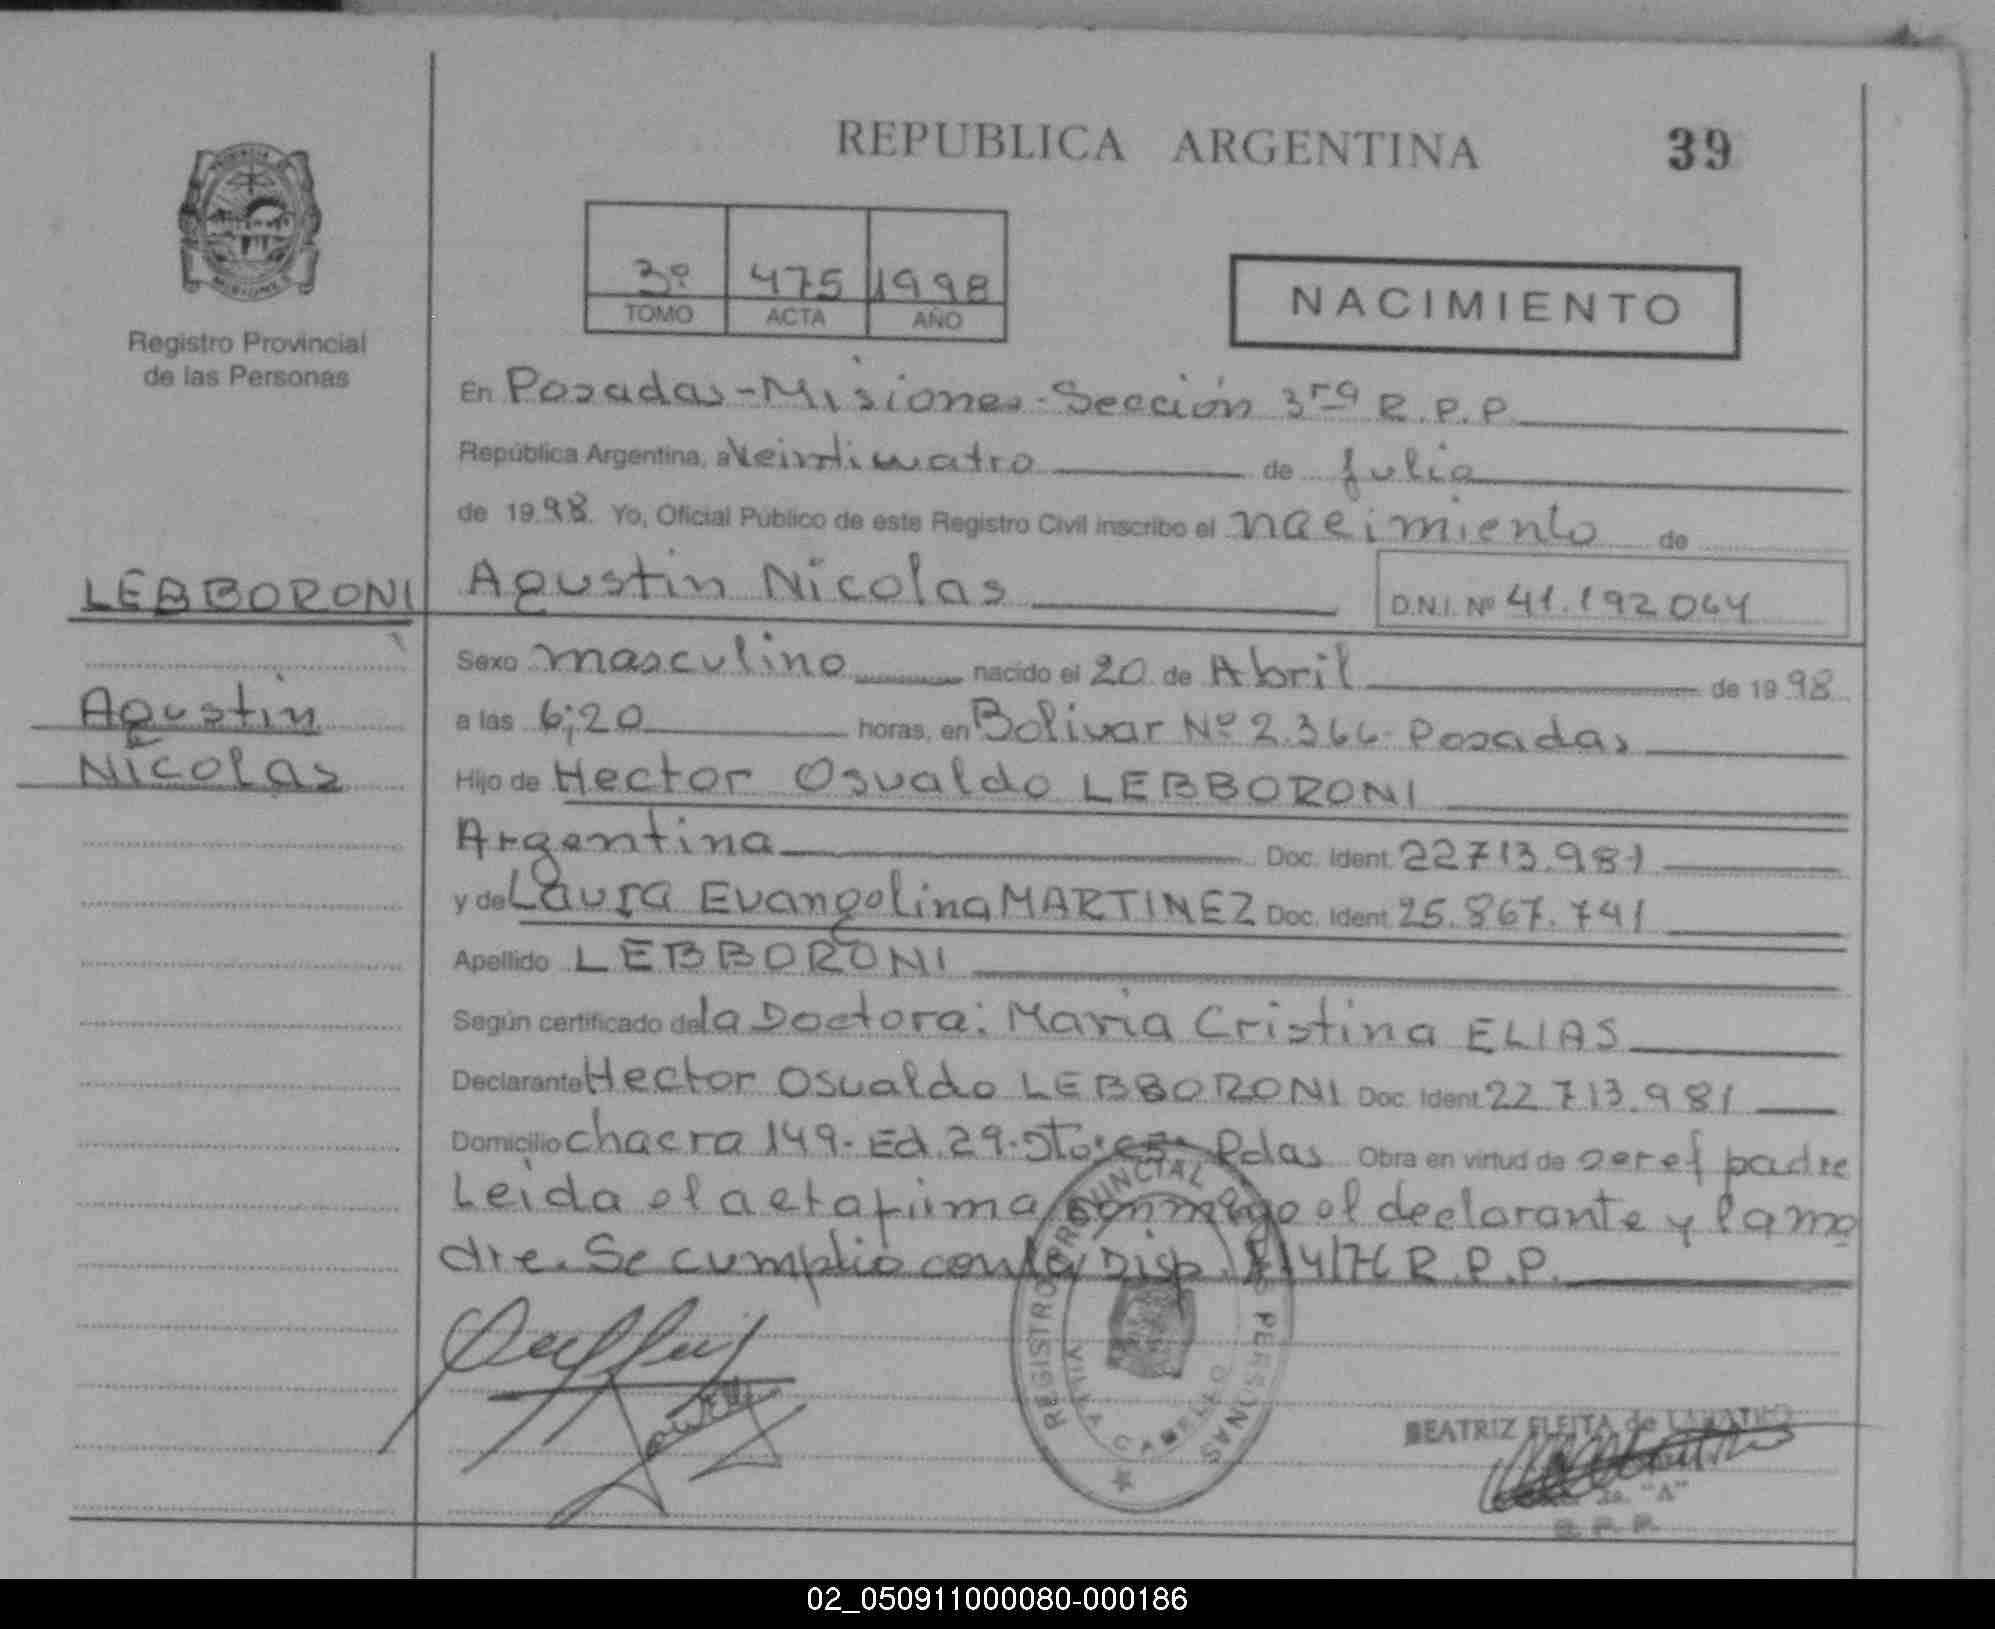 REPUBLICA ARGENTINA 39
3º 475 1998
TOMO ACTA AÑO
NACIMIENTO
Registro Provincial
de las Personas
En Posadas-Misiones-Sección 3ra R.P.P.
República Argentina, a Veinticuatro de Julio
de 1998. Yo, Oficial Público de este Registro Civil inscribo el nacimiento de
LEBBORONI Agustin Nicolas D.N.I. Nº 41.192064
Sexo masculino nacido el 20 de Abril de 1998
Agustin
a las 6;20 horas, en Bolivar Nº 2.366- Posadas
Nicolas
Hijo de Hector Osvaldo LEBBORONI
Argentina Doc. Ident. 22713.981
y de Laura Evangelina MARTINEZ Doc. Ident. 25.867.741
Apellido LEBBORONI
Según certificado de la Doctora: Maria Cristina ELIAS
Declarante Hector Osvaldo LEBBORONI Doc. Ident. 22.713.981
Domicilio chacra 149- Ed. 29- Pdas Obra en virtud de ser el padre
Leida el acta firma conmigo el declarante y la ma
dre. Se cumplio con la Disp. R.P.P.
REGISTRO PROVINCIAL DE LAS PERSONAS
VILLA CABELLO
BEATRIZ FLEITA de
"A"
R. P. P.
02_050911000080-000186